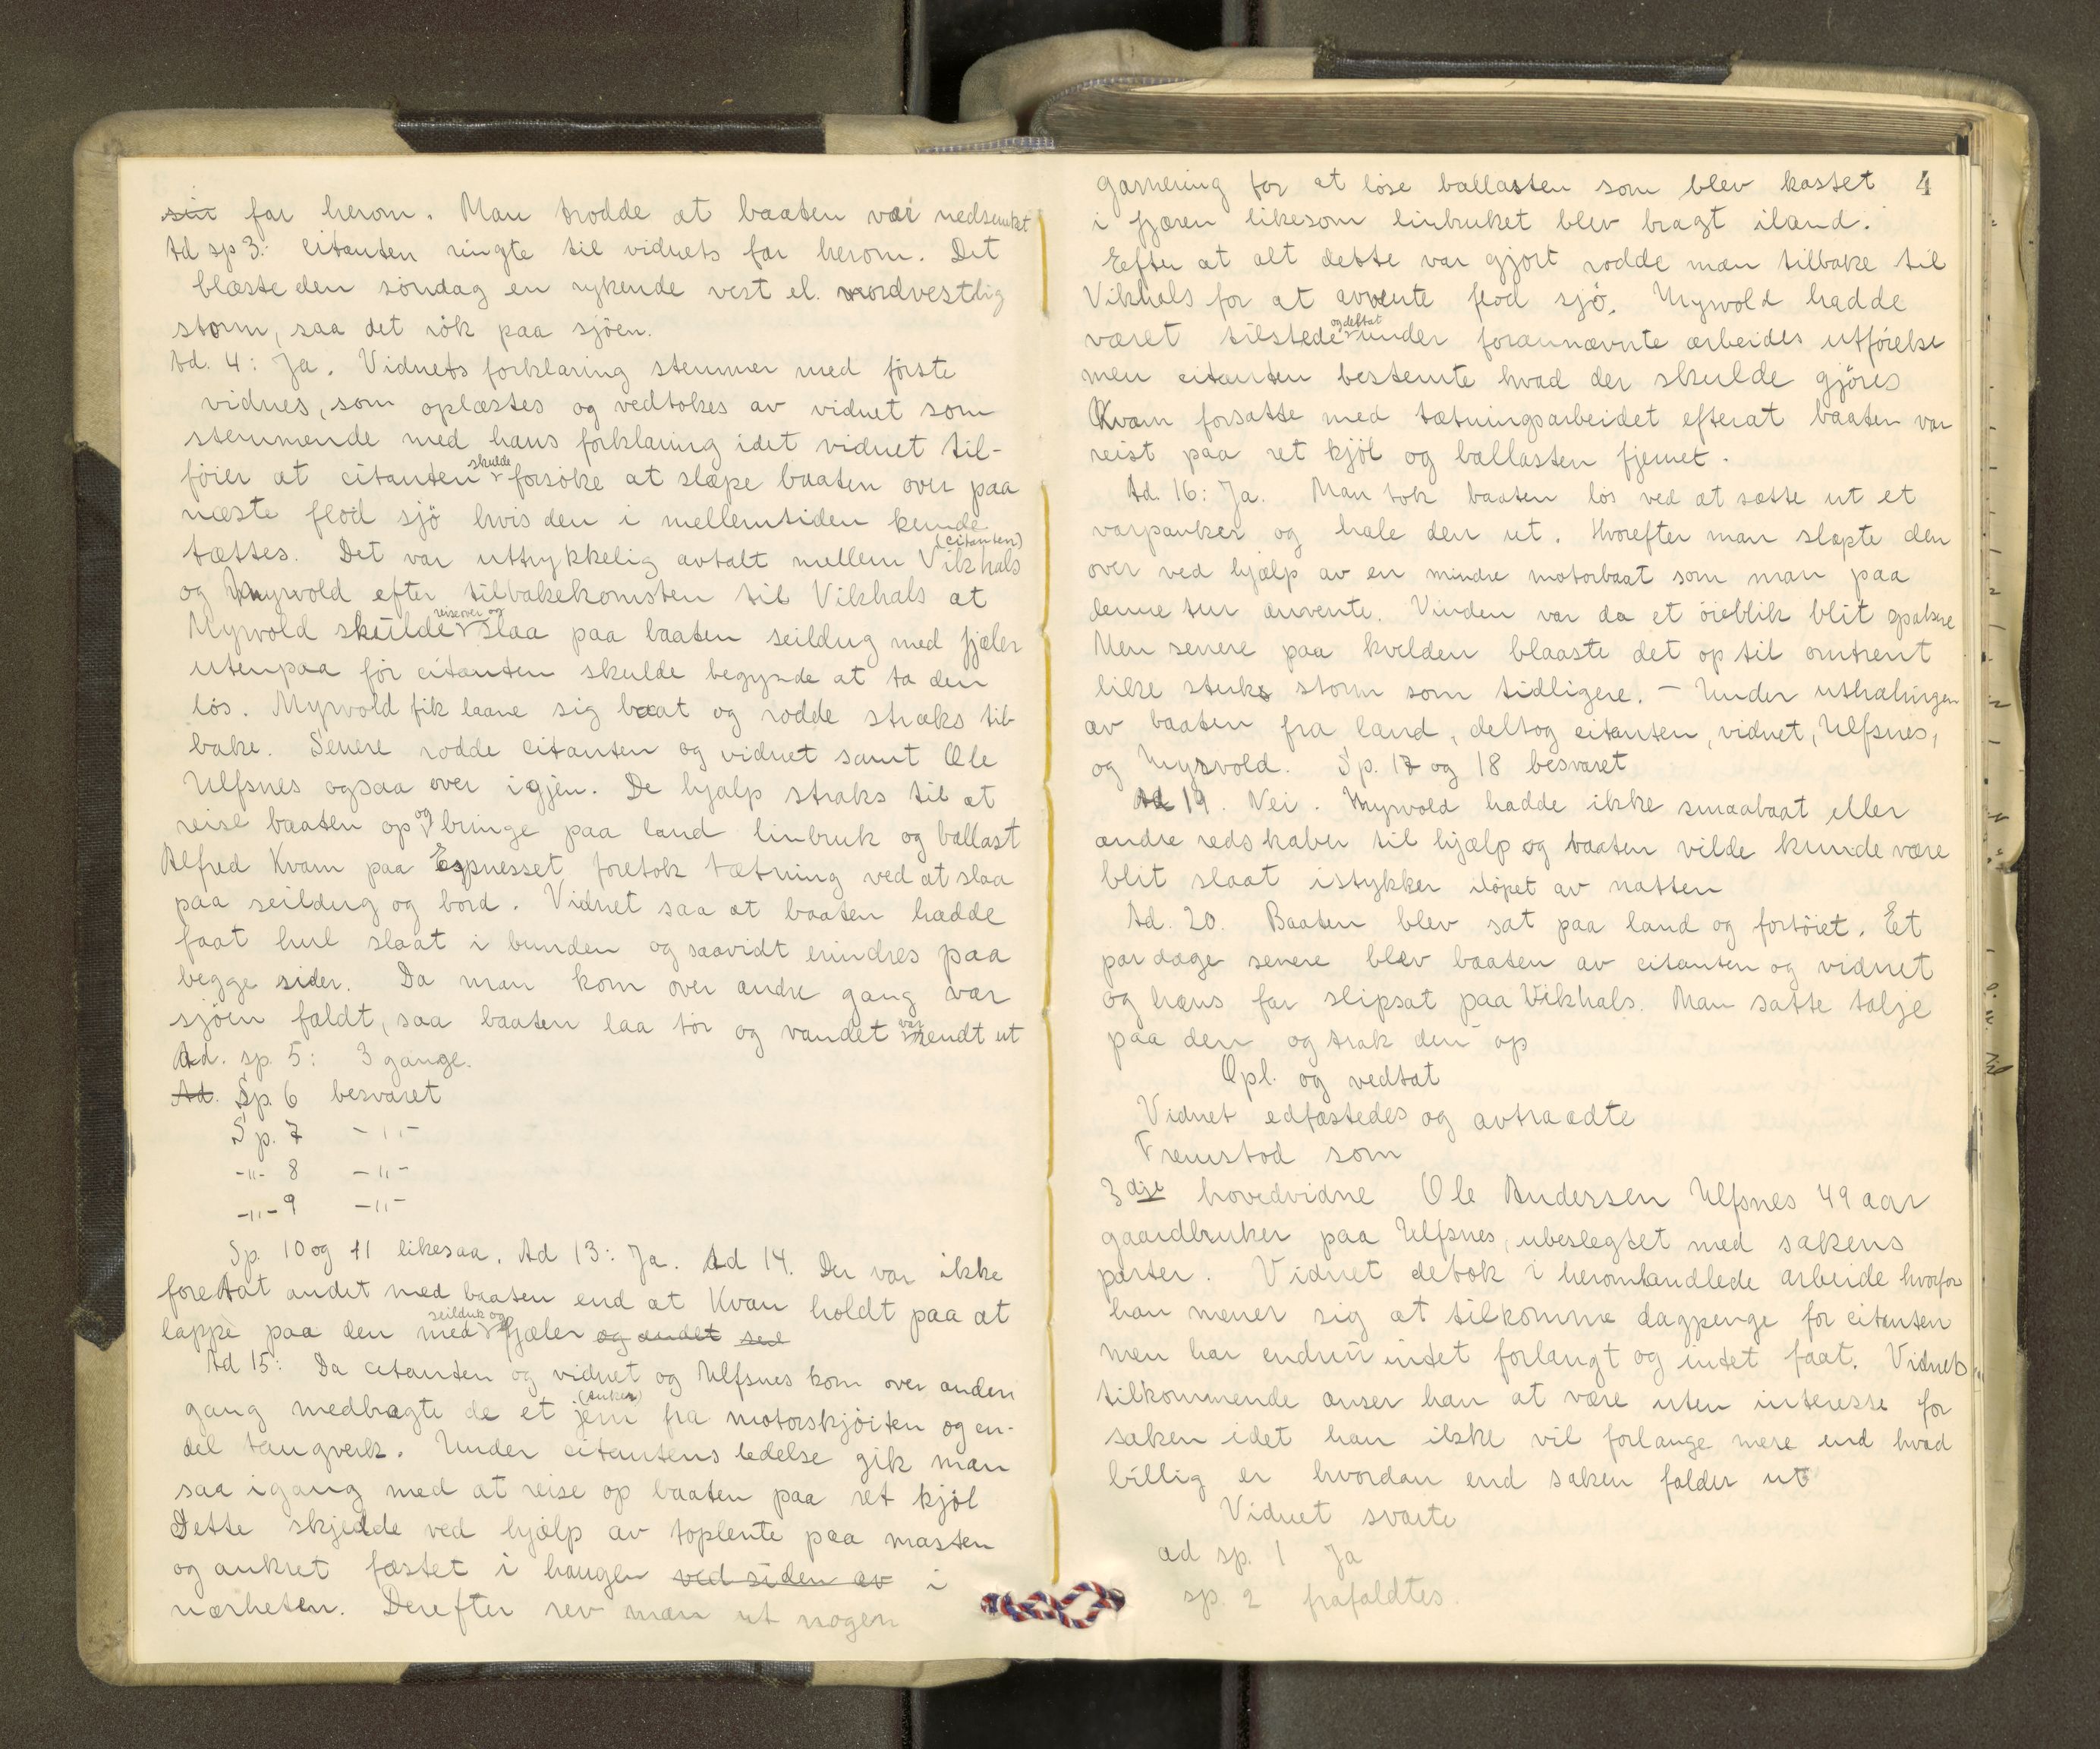 sin far herom. Man trodde at baaten var nedsunket
Ad sp 3: Citanten ringte til vidnets far herom. Det
blæste den söndag en rykende vest el. nordvestlig
storm, saa det rök paa sjöen.
Ad. 4: Ja. Vidnets forklaring stemmer med förste
vidnes, som oplæstes og vedtokes av vidnet som
stemmende med hans forklaring idet vidnet til-
föier at citanten skulde forsöke at slæpe baaten over paa
næste flod sjö hvis den i mellemtiden kunde
tættes. Det var uttrykkelig avtalt mellem Vikhals (citanten)
og Myrvold efter tilbakekomsten til Vikhals at
Myrvold skulde reise over og slaa paa baaten seildug med fjæler
utenpaa för citanten skulde begynde at ta den
lös. Myrvold fik laane sig baat og rodde straks til-
bake. Senere rodde citanten og vidnet samt Ole
Ulfsnes ogsaa over igjen. De hjalp straks til at
reise baaten op og bringe paa land linbruk og ballast
Alfred Kvam paa Espnesset foretok tætning ved at slaa
paa seildug og bord. Vidnet saa at baaten hadde
faat hul slaat i bunden og saavidt erindres paa
begge sider. Da man kom over andre gang var
sjöen faldt, saa baaten laa tör og vandet var rendt ut
Ad. sp. 5: 3 gange.
Ad. Sp. 6 besvaret
Sp. 7 -"-
-"- 8 -"-
-"- 9 -"-
Sp. 10 og 11 likesaa. Ad 13: Ja. Ad 14. Der var ikke
foretat andet med baaten end at Kvam holdt paa at
lappe paa den med seilduk og fjæler og andet sed
Ad 15: Da citanten og vidnet og Ulfsnes kom over anden
gang medbragte de et jern (anker) fra motorskjöiten og en-
del taugverk. Under citantens ledelse gik man
saa igang med at reise op baaten paa ret kjöl
Dette skjedde ved hjælp av toplente paa masten
og ankret fæstet i haugen ved siden av i
nærheten. Derefter rev man ut nogen
4
garnering for at löse ballasten som blev kastet
i fjæren likesom linbruket blev bragt iland.
Eefter at alt dette var gjort rodde man tilbake til
Vikhals for at avvente flod sjö. Myrvold hadde
været tilstede og deltat under forannævnte arbeides utförelse
men citanten bestemte hvad der skulde gjöres
Kvam forsatte med tætningsarbeidet efterat baaten var
reist paa ret kjöl og ballasten fjernet.
Ad. 16: Ja. Man tok baaten lös ved at sætte ut et
varpanker og hale den ut. Hvorefter man slæpte den
over ved hjælp av en mindre motorbaat som man paa
denne tur anvente. Vinden var da et öieblik blit spakere
Men senere paa kvelden blaaste det op til omtrent
like sterk storm som tidligere. – Under uthalingen
av baaten fra land, deltog citanten, vidnet, Ulfsnes,
og Myrvold. Sp. 17 og 18 besvaret
Ad 19. Nei. Myrvold hadde ikke smaabaat eller
andre redskaber til hjælp og baaten vilde kunde være
blit slaat istykker iløpet av natten
Ad. 20. Baaten blev sat paa land og fortöiet. Et
par dage senere blev baaten av citanten og vidnet
og hans far slipsat paa Vikhals. Man satte talje
paa den og trak den op
Opl. og vedtat
Vidnet edfæstedes og avtraadte
Fremstod som
3dje hovedvidne Ole Andersen Ulfsnes 49 aar
gaardbruker paa Ulfsnes, ubeslegtet med sakens
parter. Vidnet deltok i heromhandlede arbeide hvorfor
han mener sig at tilkomme dagpenge for citanten
men har endnu intet forlangt og intet faat. Vidnets
tilkommende anser han at være uten interesse for
saken idet han ikke vil forlange mere end hvad
billig er hvordan end saken falder ut
Vidnet svarte
ad sp. 1 Ja
sp. 2 frafaldtes.